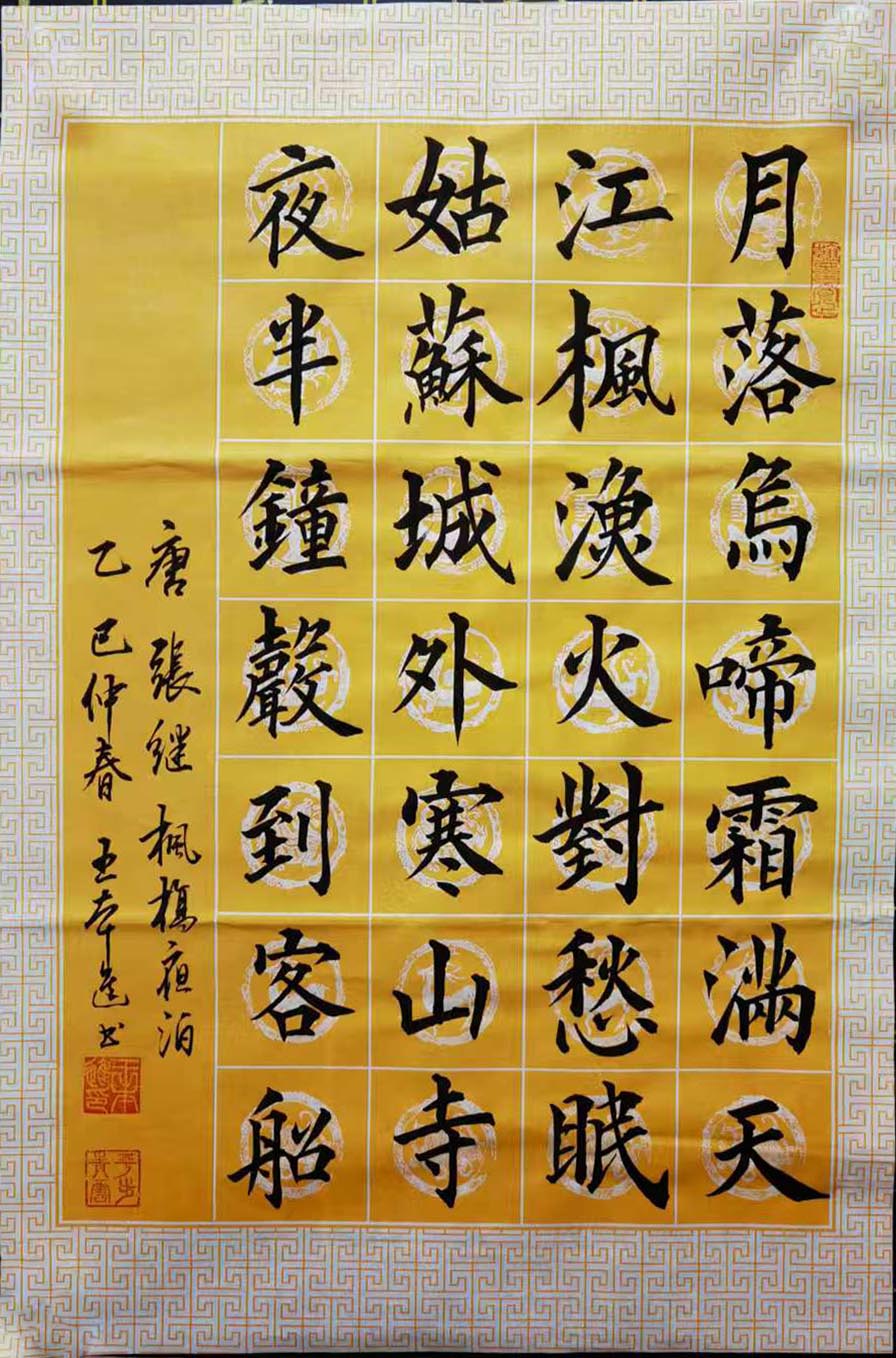 月落烏啼霜滿天
江楓漁火對愁眠
姑蘇城外寒山寺
夜半鐘聲到客船
唐張继楓橋夜泊
乙巳仲春王本進书